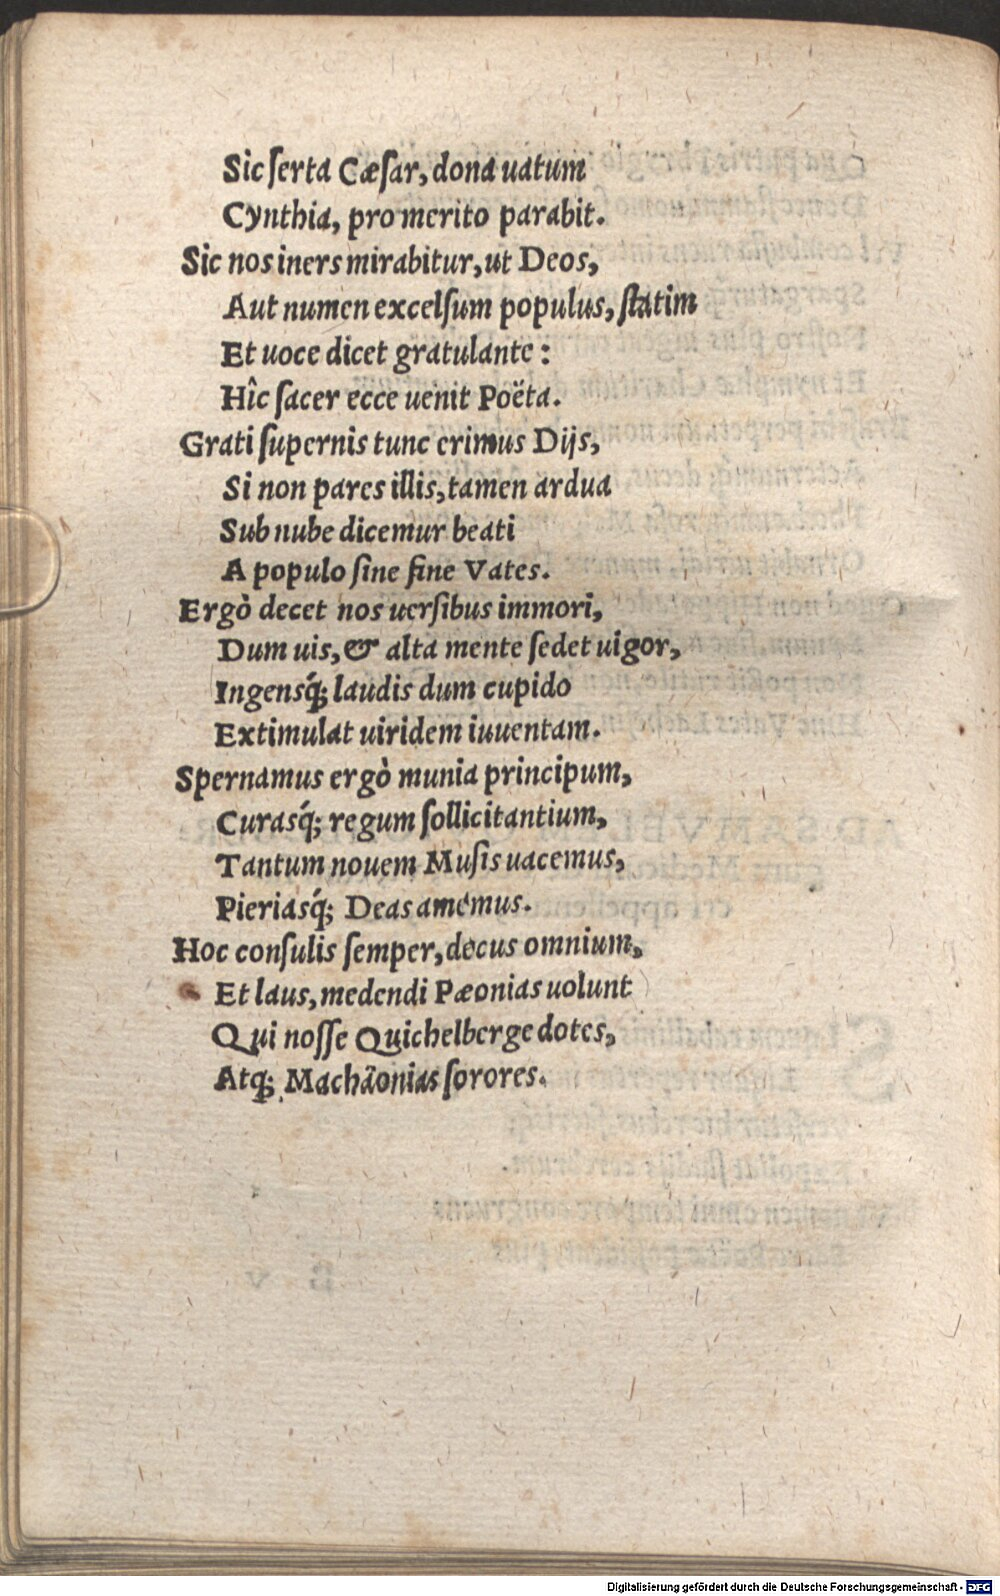 Sic ſerta Cæſar, dona uatum
Cynthia, pro merito parabit.
Sic nos iners mirabitur, ut Deos,
Aut numen excelſum populus, ſtatim
Et uoce dicet gratulante:
Hîc ſacer ecce uenit Poëta.
Grati ſupernis tunc erimus Dijs,
Si non pares illis, tamen ardua
Sub nube dicemur beati
A populo ſine fine Vates.
Ergò decet nos uerſibus immori,
Dum uis, & alta mente ſedet uigor,
Ingensq́; laudis dum cupido
Extimulat uiridem iuuentam.
Spernamus ergò munia principum,
Curasq́; regum ſollicitantium,
Tantum nouem Muſis uacemus,
Pieriasq́; Deas amemus.
Hoc conſulis ſemper, decus omnium,
Et laus, medendi Pæonias uolunt
Qui noſſe Quichelberge dotes,
Atq; Machāonias ſorores.
Digitalisierung gefördert durch die Deutsche Forschungsgemeinschaft - DFG